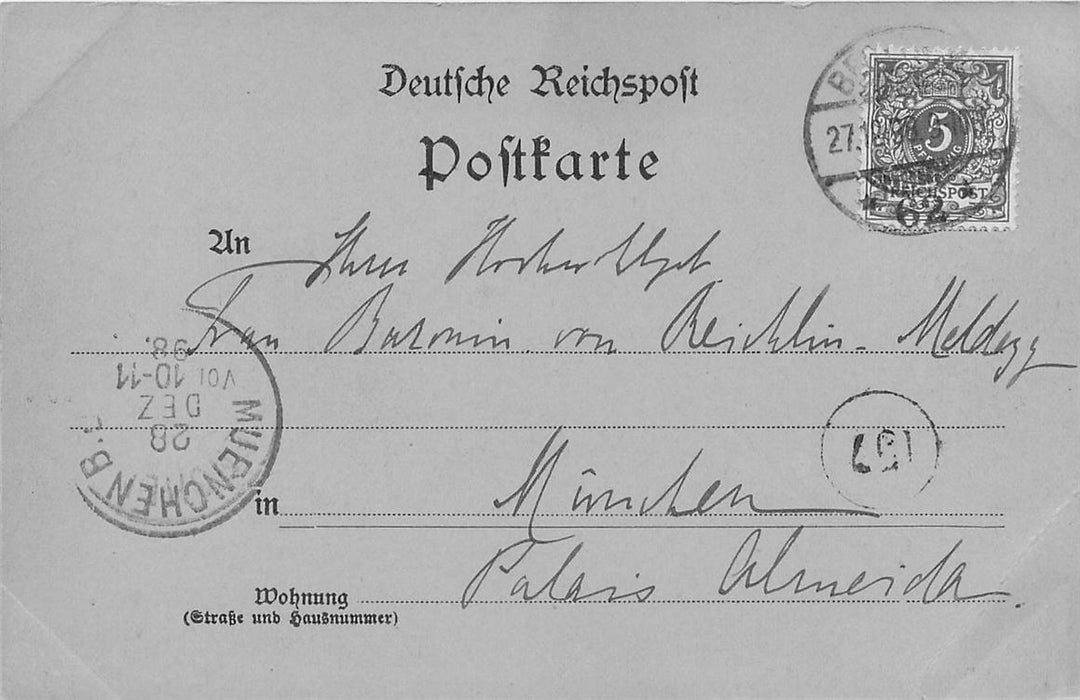 Deutsche Reichspost
Postkarte
5
PFENNIG
REICHSPOST
27.12.98
62
An Ihrer Hochwohlgeb
Frau Baronin von Reichlin-Meldegg
MUENCHEN B.
28
DEZ
VOR 10-11
98.
157
in München
Palais Almeida.
Wohnung
(Straße und Hausnummer)